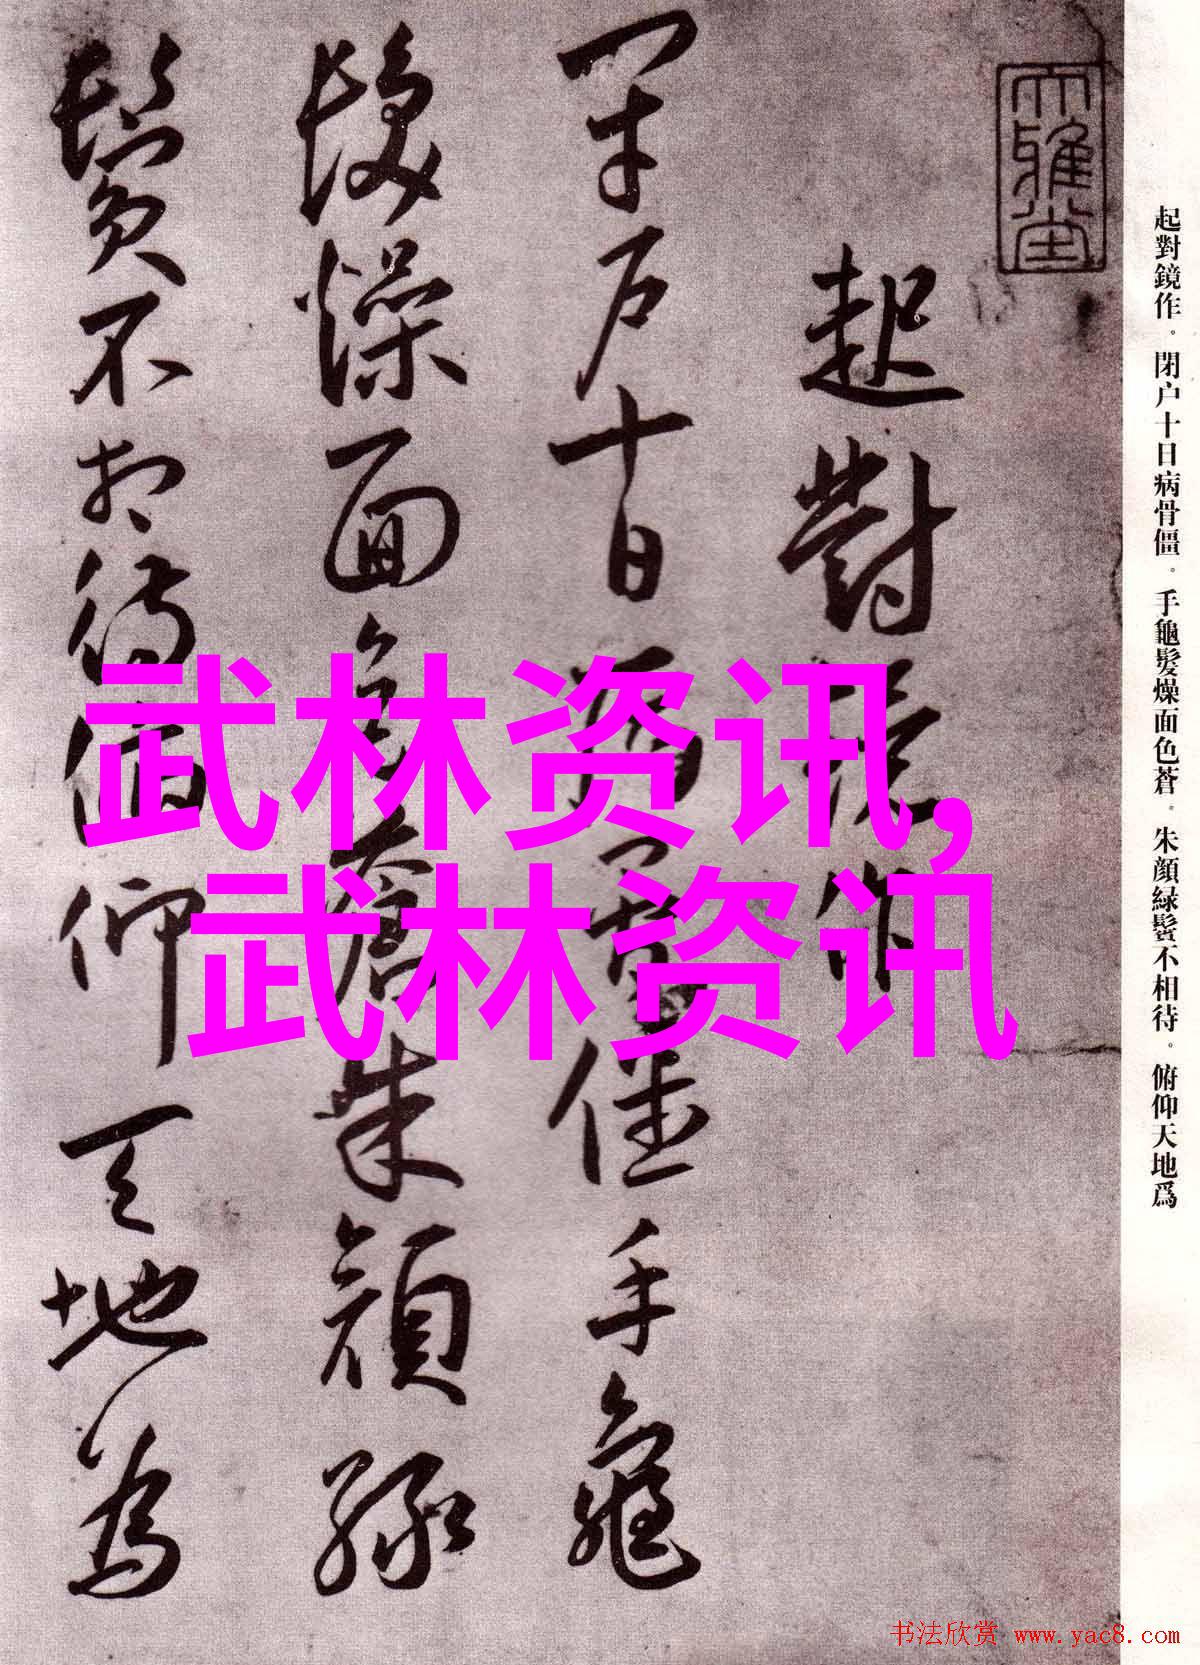 起對鏡作。閉户十日病骨僵。手龜髮燥面色蒼。朱顔緑鬢不相待。俯仰天地爲
大雅堂
起對鏡作
閉户十日病骨僵手龜
髮燥面色蒼朱顔緑
鬢不相待俯仰天地為
武林资讯,
武林资讯
书法欣赏 www.yac8.com